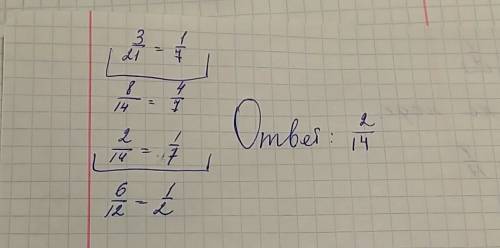 3/21 = 1/7
8/14 = 4/7
2/14 = 1/7
6/12 = 1/2
Ответ: 2/14